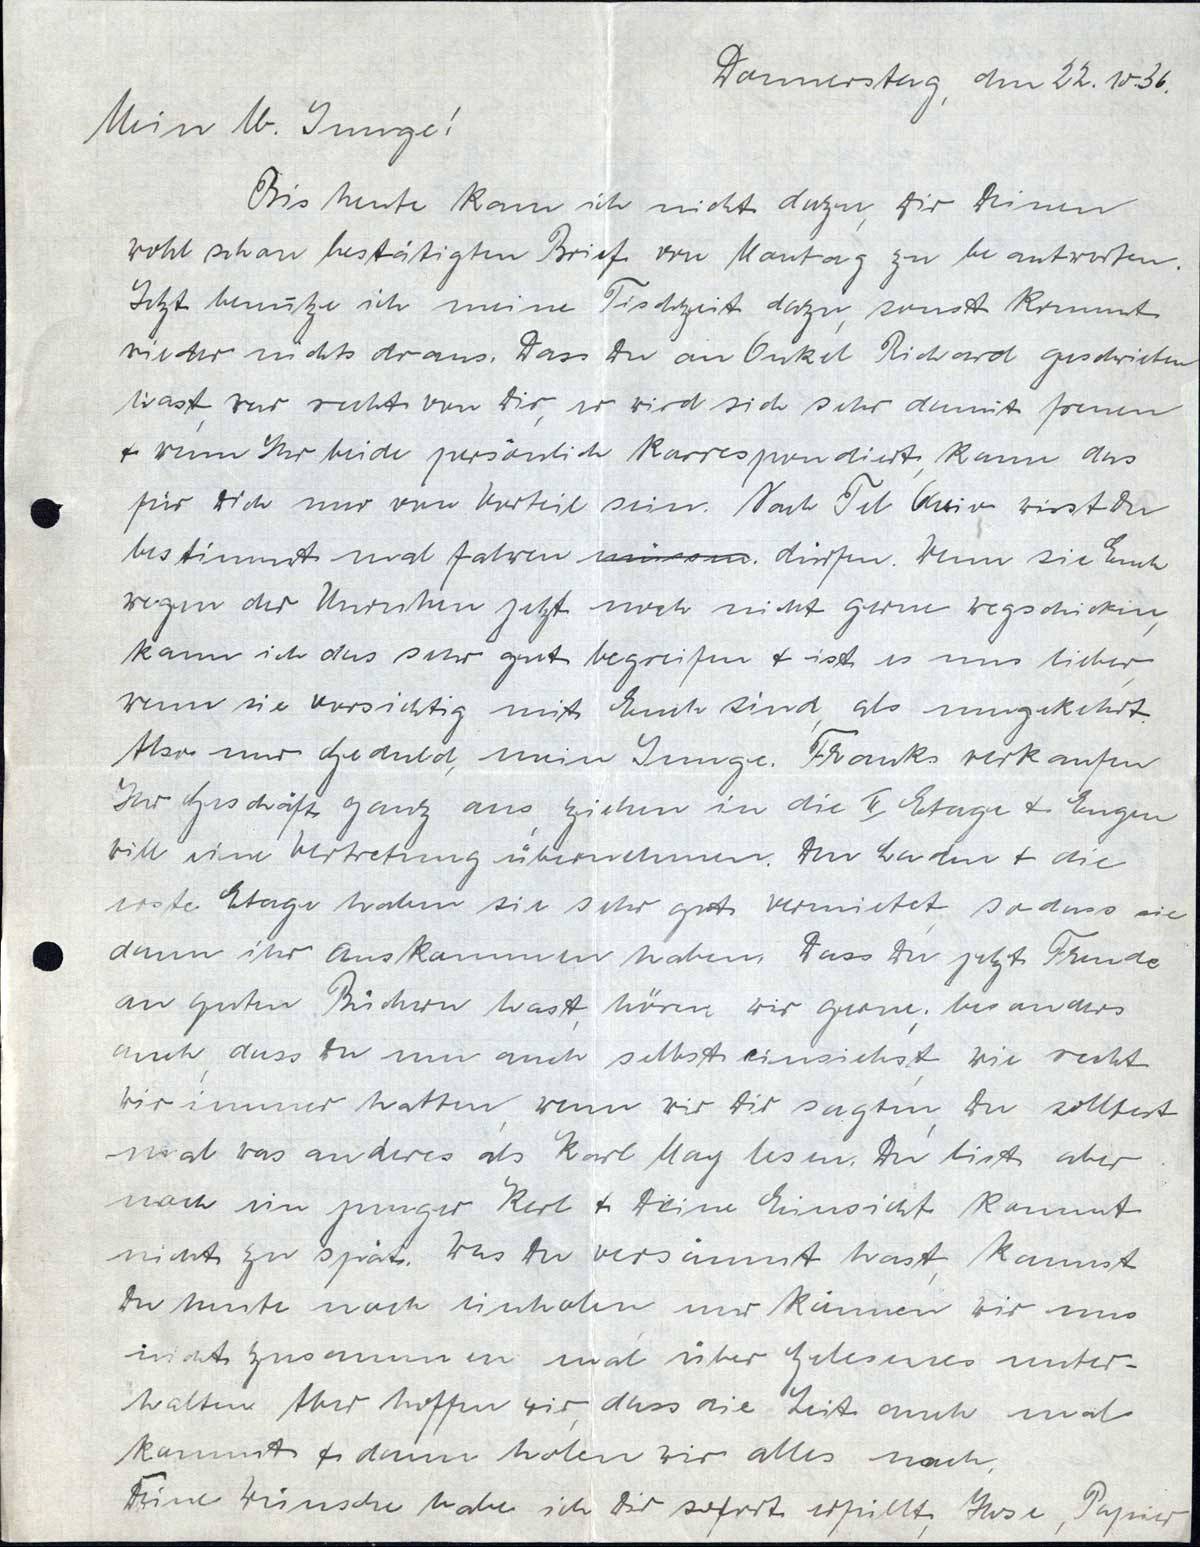 Donnerstag, den 22. 10. 36.
Mein lb. Junge!
Bis heute kam ich nicht dazu, Dir Deinen
wohl schon bestätigten Brief von Montag zu beantworten.
Jetzt benütze ich meine Tischzeit dazu, sonst kommt
wieder nichts draus. Dass Du an Onkel Richard geschrieben
hast, war recht von Dir, er wird sich sehr damit freuen
+ wenn Ihr beide persönlich korrespondiert, kann das
für Dich nur von Vorteil sein. Nach Tel Aviv wirst Du
bestimmt mal fahren müssen. dürfen. Wenn sie Euch
wegen der Unruhen jetzt noch nicht gerne wegschicken,
kann ich das sehr gut begreifen + ist es uns lieber,
wenn sie vorsichtig mit Euch sind, als umgekehrt.
Also nur Geduld, mein Junge. Franks verkaufen
Ihr Geschäft ganz aus, ziehen in die II. Etage + Eugen
will eine Vertretung übernehmen. Den Laden + die
erste Etage haben sie sehr gut vermietet, sodass sie
dann ihr Auskommen haben. Dass Du jetzt Freude
an guten Büchern hast, hören wir gerne, besonders
auch, dass Du nun auch selbst einsiehst, wie recht
wir immer hatten, wenn wir Dir sagten, Du solltest
mal was anderes als Karl May lesen. Du bist aber
noch ein junger Kerl + Deine Einsicht kommt
nicht zu spät. Was Du versäumt hast, kannst
Du heute noch einholen, nur können wir uns
nicht zusammen mal über Gelesenes unter-
halten. Aber hoffen wir, dass die Zeit auch mal
kommt + dann holen wir alles nach.
Deine Wünsche habe ich Dir sofort erfüllt, Hose, Papier